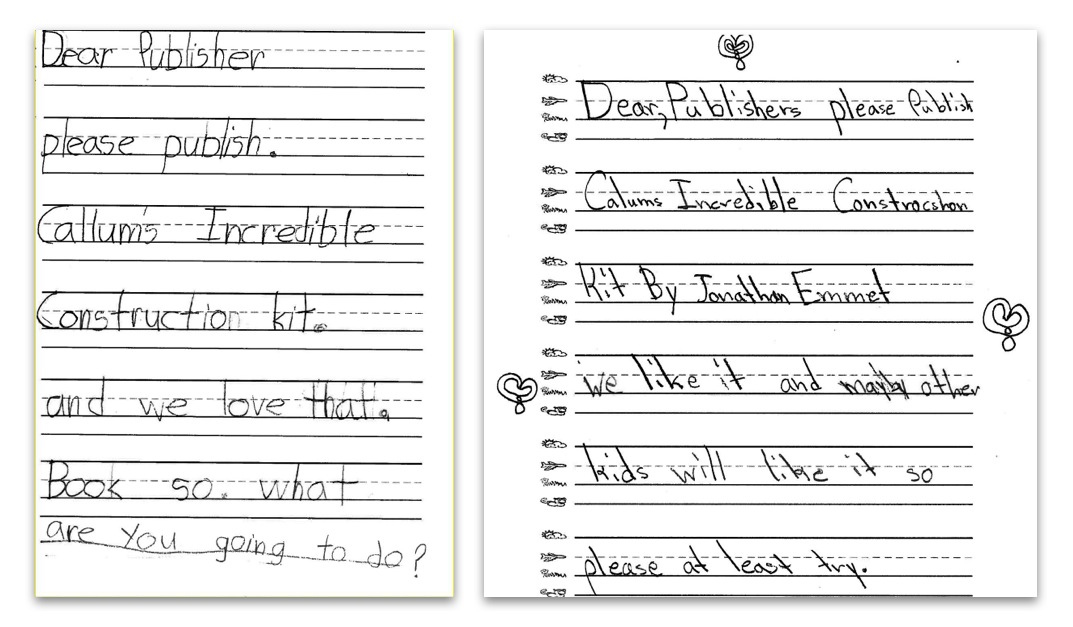 Dear Publisher
please publish.
Callum's Incredible
Construction kit.
and we love that.
Book so. what
are you going to do?
Dear, Publishers please Publish
Calums Incredible Constrocshon
Kit By Jonathan Emmet
we like it and mayby other
kids will like it so
please at least try.